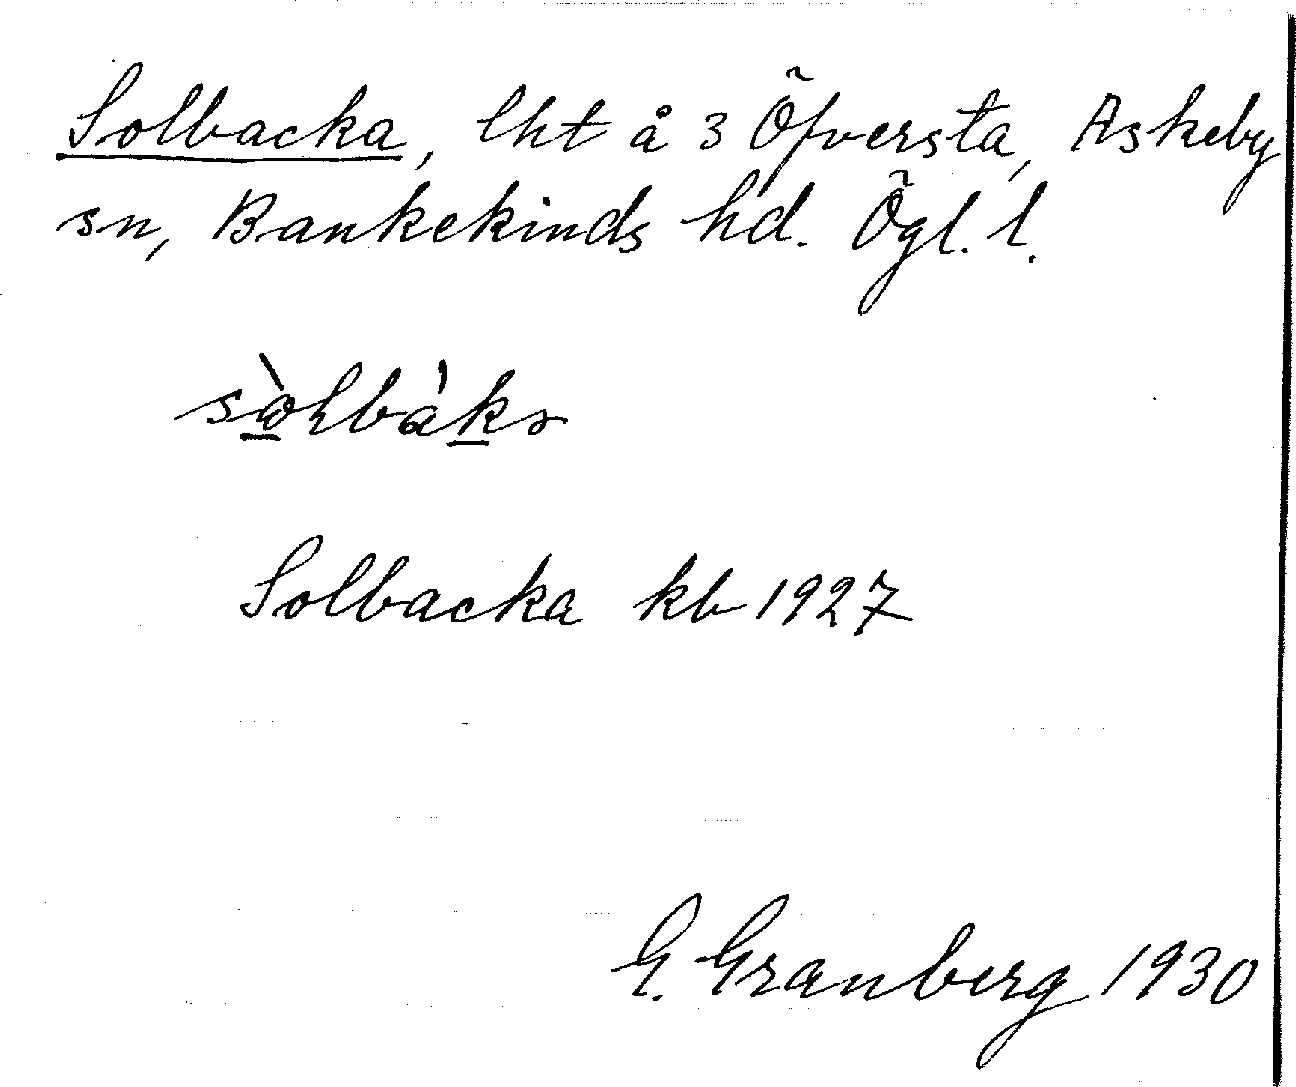 Solbacka, lht å 3 Öfversta, Askeby
sn, Bankekinds hd. Ögl. l.
Solbacka kb 1927
G. Granberg 1930